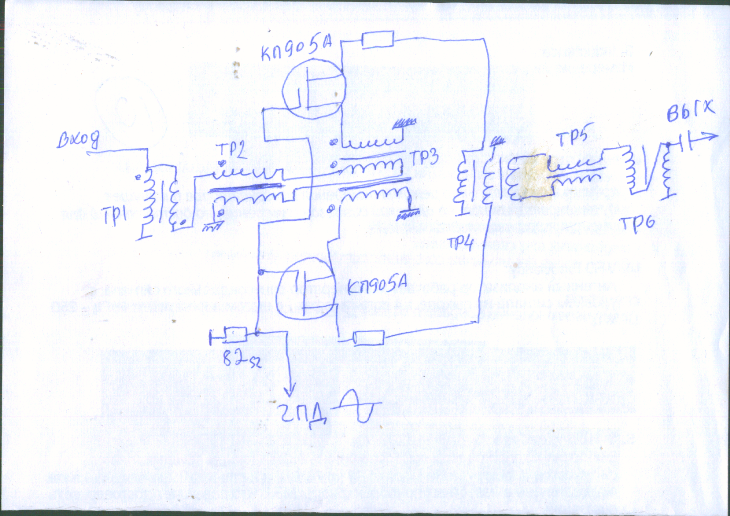 КП905А
Вход
ТР2
ТР3
ТР1
ТР5
ВЫХ
ТР4
ТР6
КП905А
82Ω
ГПД